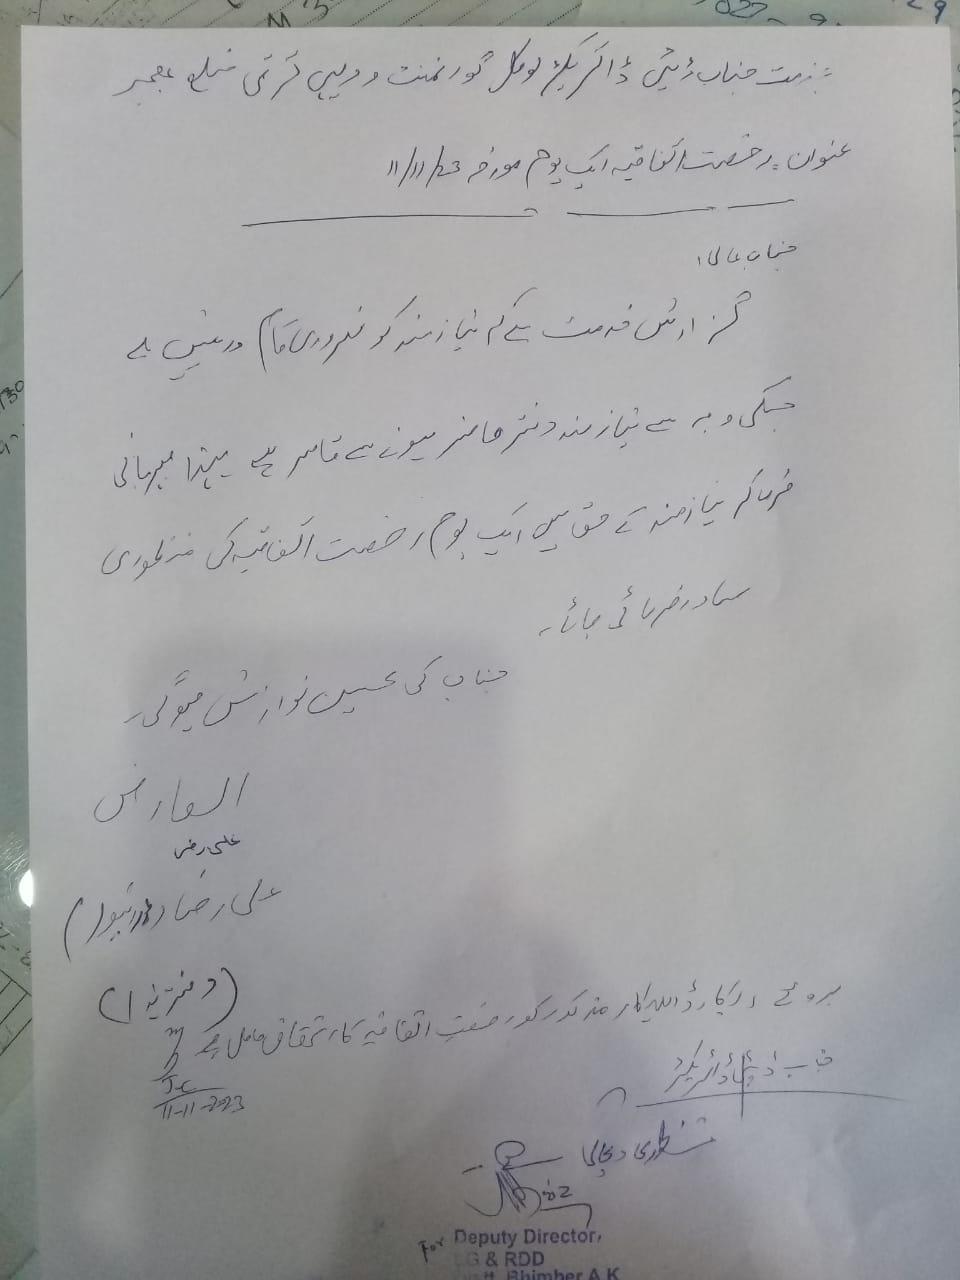 بخدمت جناب ڈپٹی ڈائریکٹر لوکل گورنمنٹ و دیہی ترقی ضلع بھمبر
عنوان:۔ رخصت اتفاقیہ ایک یوم مورخہ 11/11/23
جناب عالی!
گزارش خدمت ہے کہ نیازمند کو ضروری کام درپیش ہے
جسکی وجہ سے نیازمند دفتر حاضر ہونے سے قاصر ہے لہذا مہربانی
فرما کر نیازمند کے حق میں ایک یوم رخصت اتفاقیہ کی منظوری
صادر فرمائی جائے۔
جناب کی عین نوازش ہوگی۔
العارض
علی رضا
علی رضا (ڈرائیور)
(دفتر ہذا)
بروئے ریکارڈ اہلیکار مذکور کو رخصت اتفاقیہ کا استحقاق حاصل ہے
11-11-2023
جناب ڈپٹی ڈائریکٹر
منظوری دی جاتی
For Deputy Director,
LG & RDD
Bhimber A.K